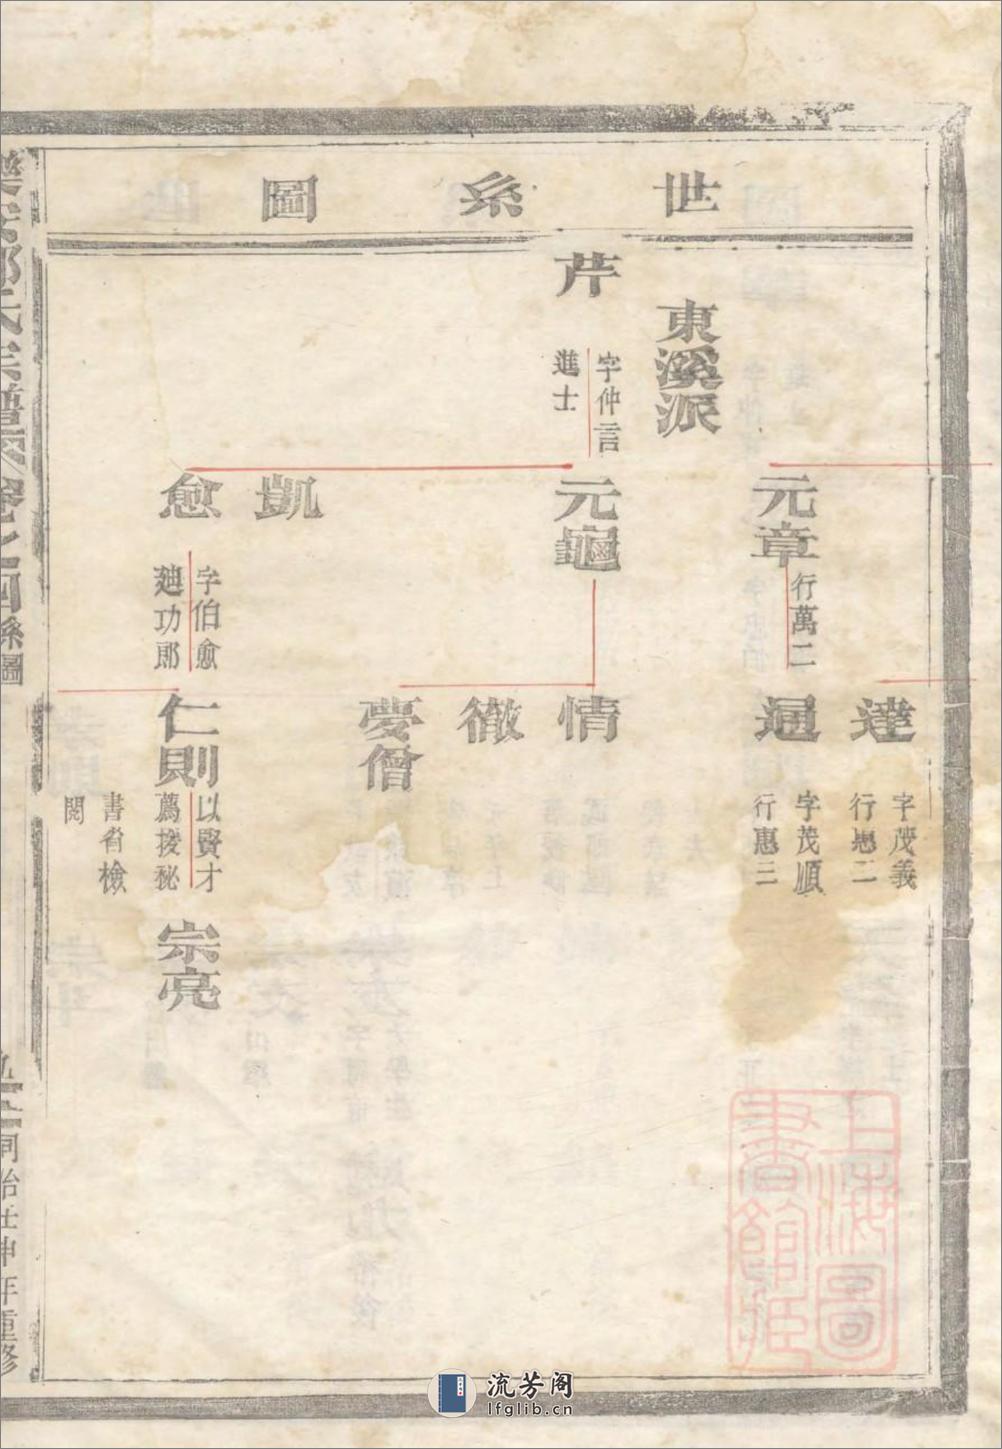 世系圖
東溪派
元章
行萬二
達
字茂義
行惠二
通
字茂順
行惠三
芹
字仲言
進士
元龜
情
徹
夢僧
凱
愈
字伯愈
廸功郎
仁則
以賢才
薦授秘
書省檢
閱
宗亮
氏宗譜
卷之
系圖
同治壬申年重修
上海圖書館藏
流芳阁
lfglib.cn